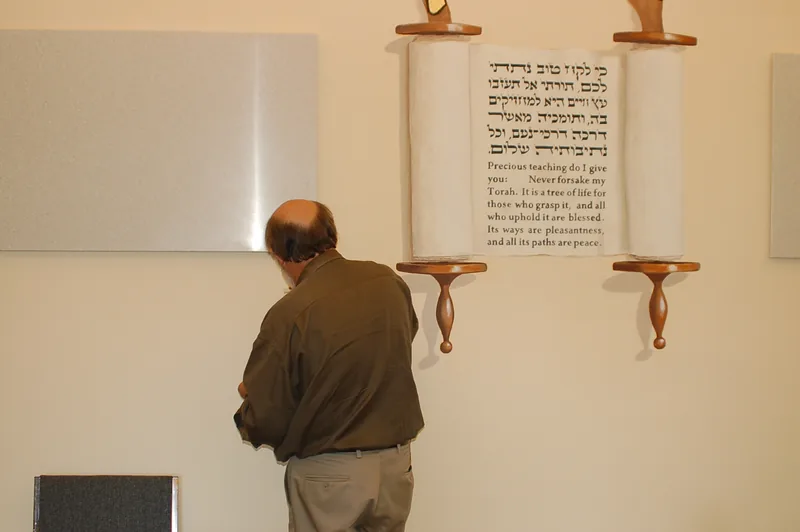 כי לקח טוב נתתי
לכם, תורתי אל תעזבו
עץ חיים היא למחזיקים
בה, ותומכיה מאשר
דרכה דרכי־נעם, וכל
נתיבותיה שלום.
Precious teaching do I give
you: Never forsake my
Torah. It is a tree of life for
those who grasp it, and all
who uphold it are blessed.
Its ways are pleasantness,
and all its paths are peace.